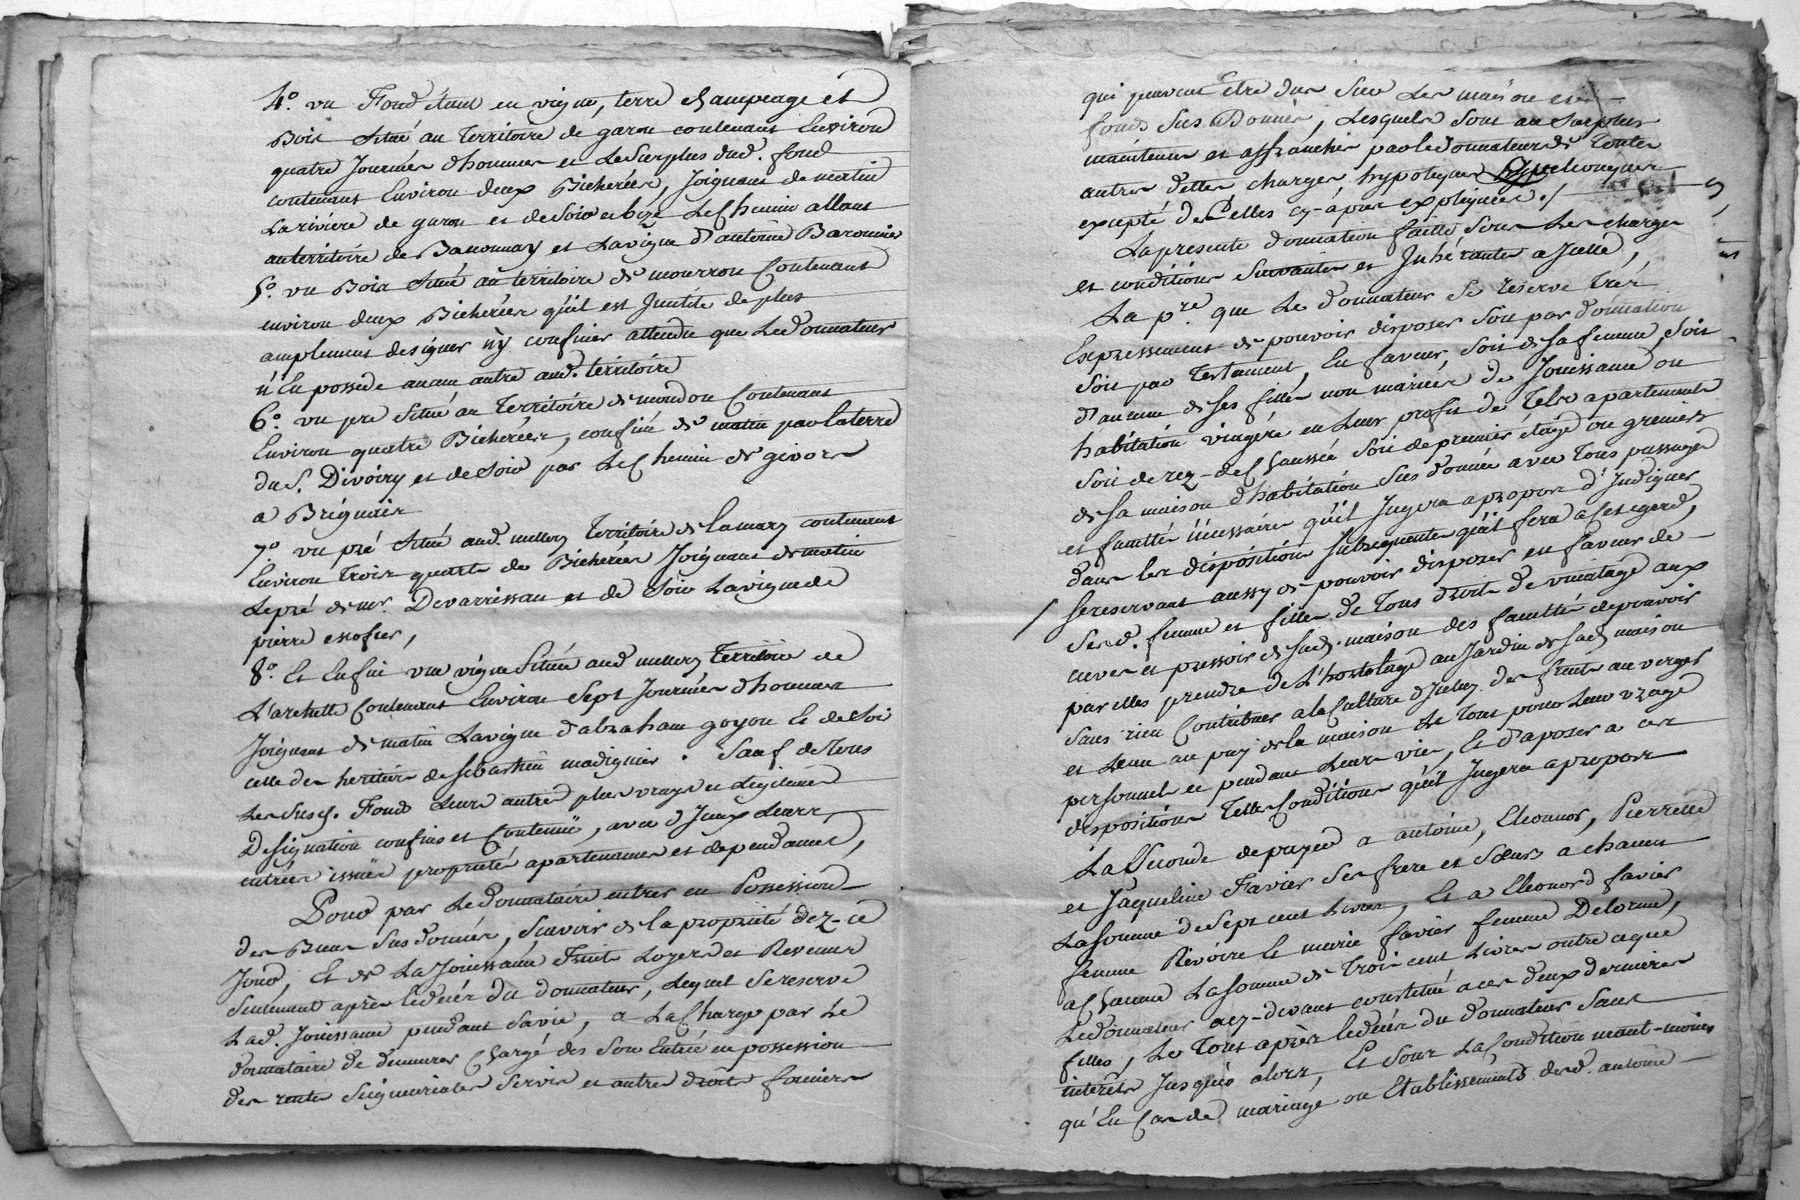 4.° un Fond étant en vigne, terre champeage et
Bois situé au Territoire de garon contenant Environ
quatre Journées d'hommes et Le Surplus dud. fond
contenant Environ deux Bicherées, Joignant de matin
La riviére de garon et de Soir et bize Le Chemin allant
au territoire de Banonnay et La vigne d'antoine Baronnier
5.° un Bois situé au territoire de mourron Contenant
environ deux Bicherées qu'il est Inutile de plus
amplement designer n'y confiner attendu que Le donnateur
n'En possede aucun autre aud. territoire
6.° un pré Situé au Territoire de mondon Contenant
Environ quatre Bicherées, confiné de matin par la terre
du S. Divoiry et de Soir par Le Chemin de givors
a Brignais
7.° un pré situé aud. millery Territoire de Lamary contenant
Environ trois quarts de Bicherée Joignant de matin
Le pré de mr. Devarissan et de Soir La vigne de
pierre essofier,
8.° Et Enfin une vigne Située aud millery Territoire de
L'archette Contenant Environ Sept Journées d'hommes
Joignant de matin La vigne d'abraham goyon Et de Soir
celle des heritiers de Sébastien madignier. Sauf de Tous
Les Susd. Fonds Leurs autres plus vrayes et Legitimes
Designation confins et Contenüe, avec d'Iceux Leurs
entrées issües proprieté apartenances et dependances,
Pour par Le donnataire entrer en Possession
des Biens Sus donnés, Scavoir de la proprieté dez-ce
Jour, Et de La Jouissance Fruits Loyers et Revenus
Seulement après Le decés du donnateur, Lequel Se reserve
Lad. Jouissance pendant Sa vie, a La Charge par Le
donnataire de demeurer Chargé dès Son Entrée en possession
des rentes Seigneuriales Servis et autres droits fonciers
qui peuvent Etre dus Sur Les maison et
fonds Sus Donnés, Lesquels Sont au Surplus
maintenus et affranchis par le donnateur de Toutes
autres dettes charges hypoteques quelconques
excepté de Celles cy-après expliquées ./
La presente donnation faitte Sous Les charges
et conditions Suivantes et Inhérantes a Icelle,
La p.re que Le donnateur Se reserve Très
Expressement de pouvoir disposer Soit par donnation
Soit par Testament, En faveur, Soit de Sa femme Soit
d'aucune de Ses filles non mariées de Jouissance ou
habitation viagére en Leur profit de Tels apartements
Soit de rez-de Chaussée Soit de premier étage ou greniers
de Sa maison d'habitation Sus donnée avec Tous passages
et facultés nécessaires qu'il Jugera apropos d'Indiquer
dans les dispositions Subsequentes qu'il fera a Cet egard,
Se reservant aussy de pouvoir disposer en faveur de
Sesd. femme et filles de Tous droits de vinatage aux
cuves et pressoirs de Sad. maison des facultés de pouvoir
par elles prendre de L'hortolage au Jardin de Sad maison
Sans rien Contribuer a la Culture d'Iceluy des fruits au verger
et L'eau au puy de la maison Le Tout pour Leur uzage
personnel et pendant Leur vie, Et d'aposer a ces
dispositions Telles Conditions qu'il Jugera apropos
La Seconde de payer a antoine, Eleonor, Pierrette
et Jaqueline Favier Ses frere et Sœurs a chacun
La Somme de Sept cent Livres, Et a Eleonord favier
femme Révoire Et marie favier femme Delorme,
a Chacune La Somme de Trois cent Livres outre ce que
Le donnateur a cy-devant constitué a ces deux dernieres
filles, Le Tout après Le decés du donnateur Sans
intérêts Jusqu'a alors, Et Sous La Condition neant-moins
qu'En Cas de mariage ou Etablissements dud. antoine